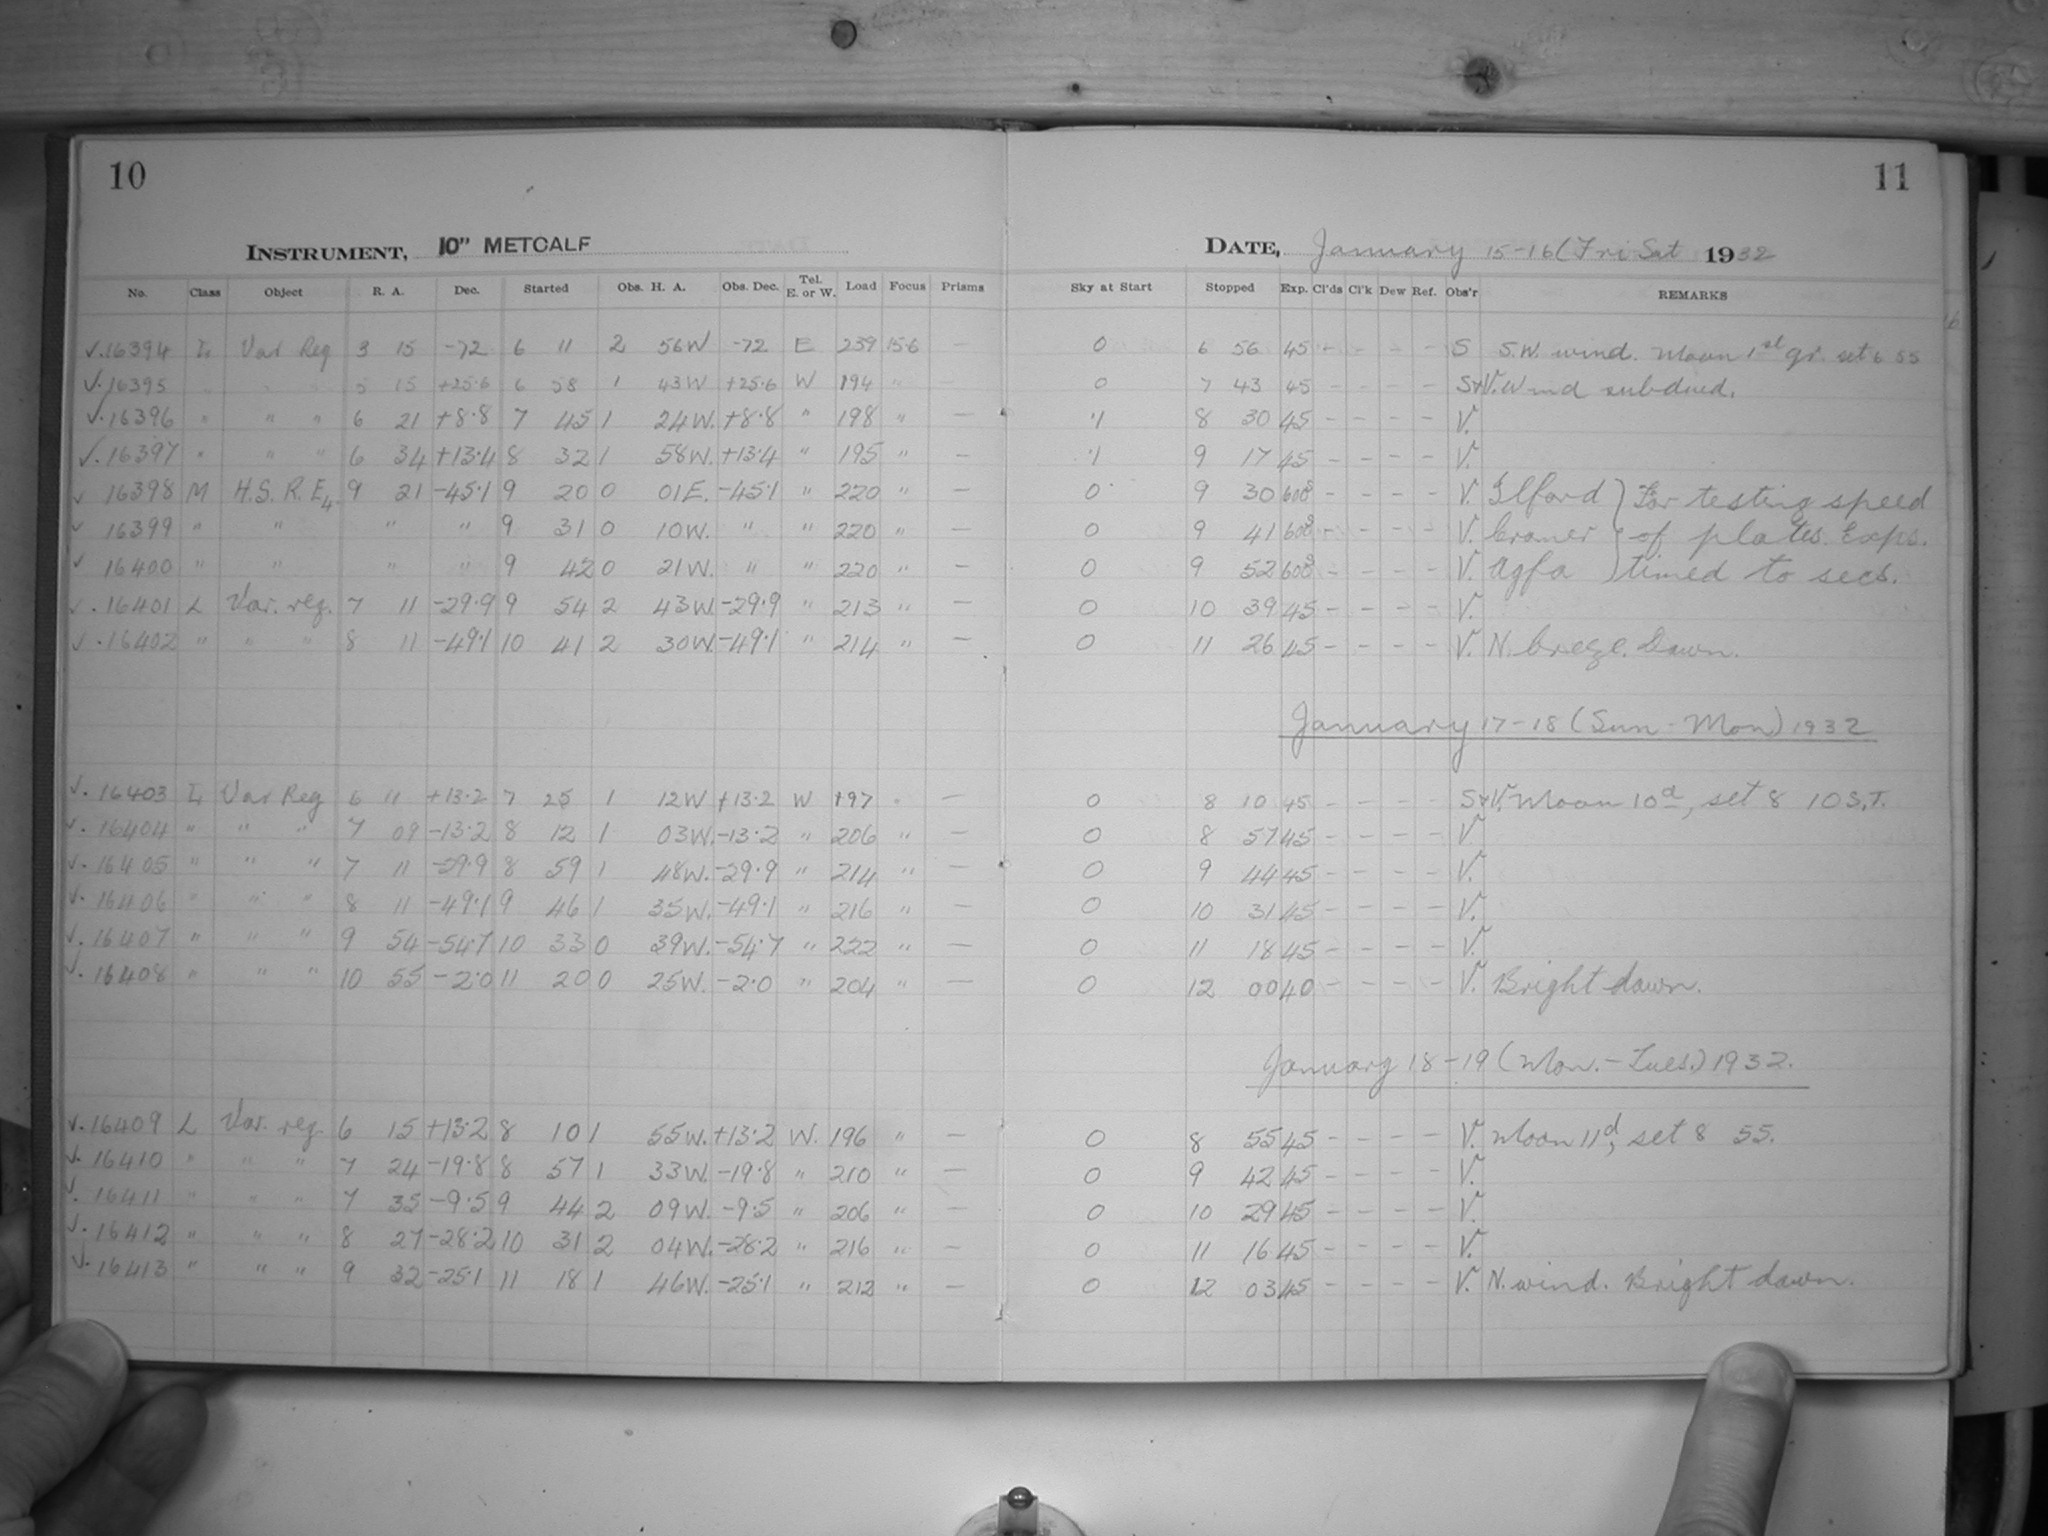 10
INSTRUMENT, 10" METCALF
No. Class Object R. A. Dec. Started Obs. H. A. Obs. Dec. Tel. E. or W. Load Focus Prisms
√.16394 L Var Reg 3 15 -72 6 11 2 56W -72 E 239 15.6 —
√.16395 " " " 5 15 +25.6 6 58 1 43W +25.6 W 194 " —
√.16396 " " " 6 21 +8.8 7 45 1 24W. +8.8 " 198 " —
√.16397 " " " 6 34 +13.4 8 32 1 58W. +13.4 " 195 " —
√ 16398 M H.S.R.E4 9 21 -45.1 9 20 0 01E. -45.1 " 220 " —
√ 16399 " " " " 9 31 0 10W. " " 220 " —
√ 16400 " " " " 9 42 0 21W. " " 220 " —
√.16401 L Var. reg. 7 11 -29.9 9 54 2 43W. -29.9 " 213 " —
√.16402 " " " 8 11 -49.1 10 41 2 30W. -49.1 " 214 " —
√.16403 L Var Reg 6 11 +13.2 7 25 1 12W +13.2 W 197 " —
√.16404 " " " 7 09 -13.2 8 12 1 03W. -13.2 " 206 " —
√.16405 " " " 7 11 -29.9 8 59 1 48W. -29.9 " 214 " —
√.16406 " " " 8 11 -49.1 9 46 1 35W. -49.1 " 216 " —
√.16407 " " " 9 54 -54.7 10 33 0 39W. -54.7 " 222 " —
√.16408 " " " 10 55 -2.0 11 20 0 25W. -2.0 " 204 " —
√.16409 L Var. reg. 6 15 +13.2 8 10 1 55W. +13.2 W. 196 " —
√.16410 " " " 7 24 -19.8 8 57 1 33W. -19.8 " 210 " —
√.16411 " " " 7 35 -9.5 9 44 2 09W. -9.5 " 206 " —
√.16412 " " " 8 27 -28.2 10 31 2 04W. -28.2 " 216 " —
√.16413 " " " 9 32 -25.1 11 18 1 46W. -25.1 " 212 " —
11
DATE, January 15-16 (Fri Sat 1932
Sky at Start Stopped Exp. Cl'ds Cl'k Dew Ref. Obs'r REMARKS
0 6 56 45 - - - - S S.W. wind. Moon 1st qr. set 6 55
0 7 43 45 - - - - S+V. Wind subdued.
.1 8 30 45 - - - - V.
.1 9 17 45 - - - - V.
0 9 30 600s - - - - V. Ilford } For testing speed
0 9 41 600s - - - - V. Cramer } of plates. Exps.
0 9 52 600s - - - - V. Agfa } timed to secs.
0 10 39 45 - - - - V.
0 11 26 45 - - - - V. N. breeze. Dawn.
January 17-18 (Sun-Mon) 1932
0 8 10 45 - - - - S+V. Moon 10d, set 8 10 S.T.
0 8 57 45 - - - - V
0 9 44 45 - - - - V.
0 10 31 45 - - - - V.
0 11 18 45 - - - - V.
0 12 00 40 - - - - V. Bright dawn.
January 18-19 (Mon.-Tues.) 1932.
0 8 55 45 - - - - V. Moon 11d, set 8 55.
0 9 42 45 - - - - V.
0 10 29 45 - - - - V.
0 11 16 45 - - - - V.
0 12 03 45 - - - - V. N. wind. Bright dawn.